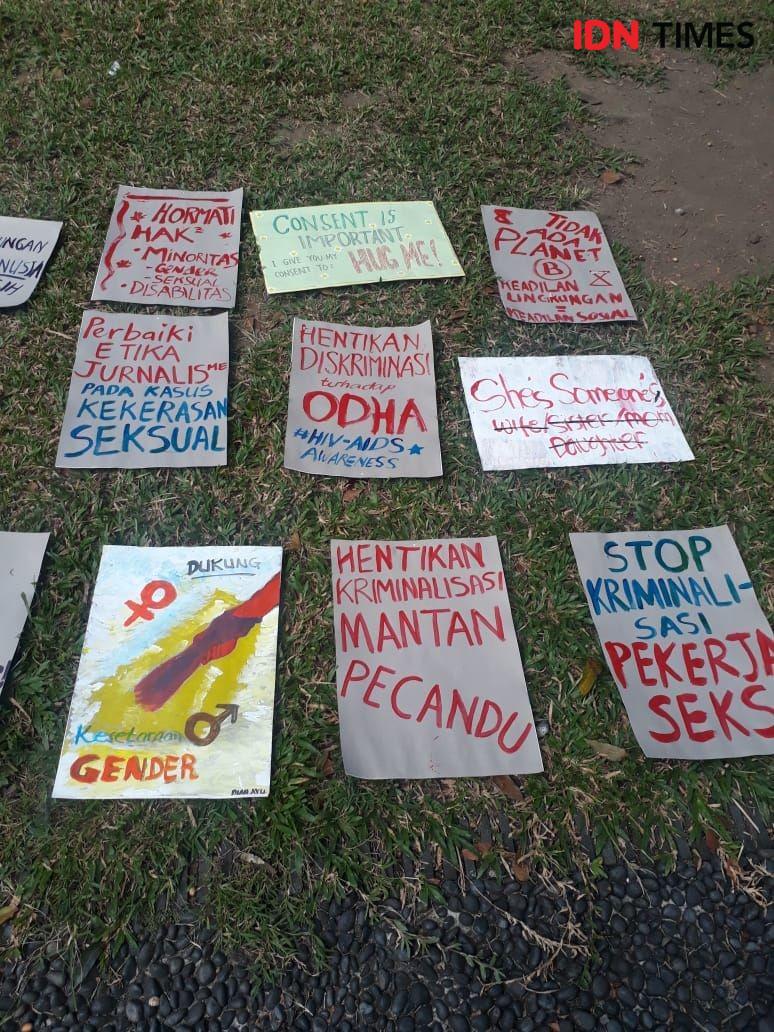 IDN TIMES
UNGAN
NUSIA
HORMATI
HAK²
• MINORITAS
- GENDER
SEKSUAL
DISABILITAS
CONSENT IS
IMPORTANT
I GIVE YOU MY
CONSENT TO:
HUG ME!
TIDAK
ADA
PLANET
B
KEADILAN
LINGKUNGAN
=
KEADILAN SOSIAL
Perbaiki
ETIKA
JURNALISME
PADA KASUS
KEKERASAN
SEKSUAL
HENTIKAN
DISKRIMINASI
terhadap
ODHA
#HIV-AIDS
AWARENESS
She's Someone's
wife/sister/mom
Daughter
DUKUNG
Kesetaraan
GENDER
DIAH AYU
HENTIKAN
KRIMINALISASI
MANTAN
PECANDU
STOP
KRIMINALI-
SASI
PEKERJA
SEKS